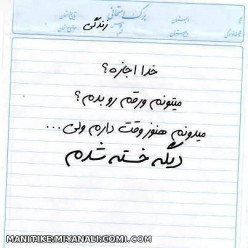 زندگی
خدا اجازه؟
میتونم ورقم رو بدم؟
میدونم هنوز وقت دارم ولی...
دیگه خسته شدم
MANITIKE.MIYANALI.COM